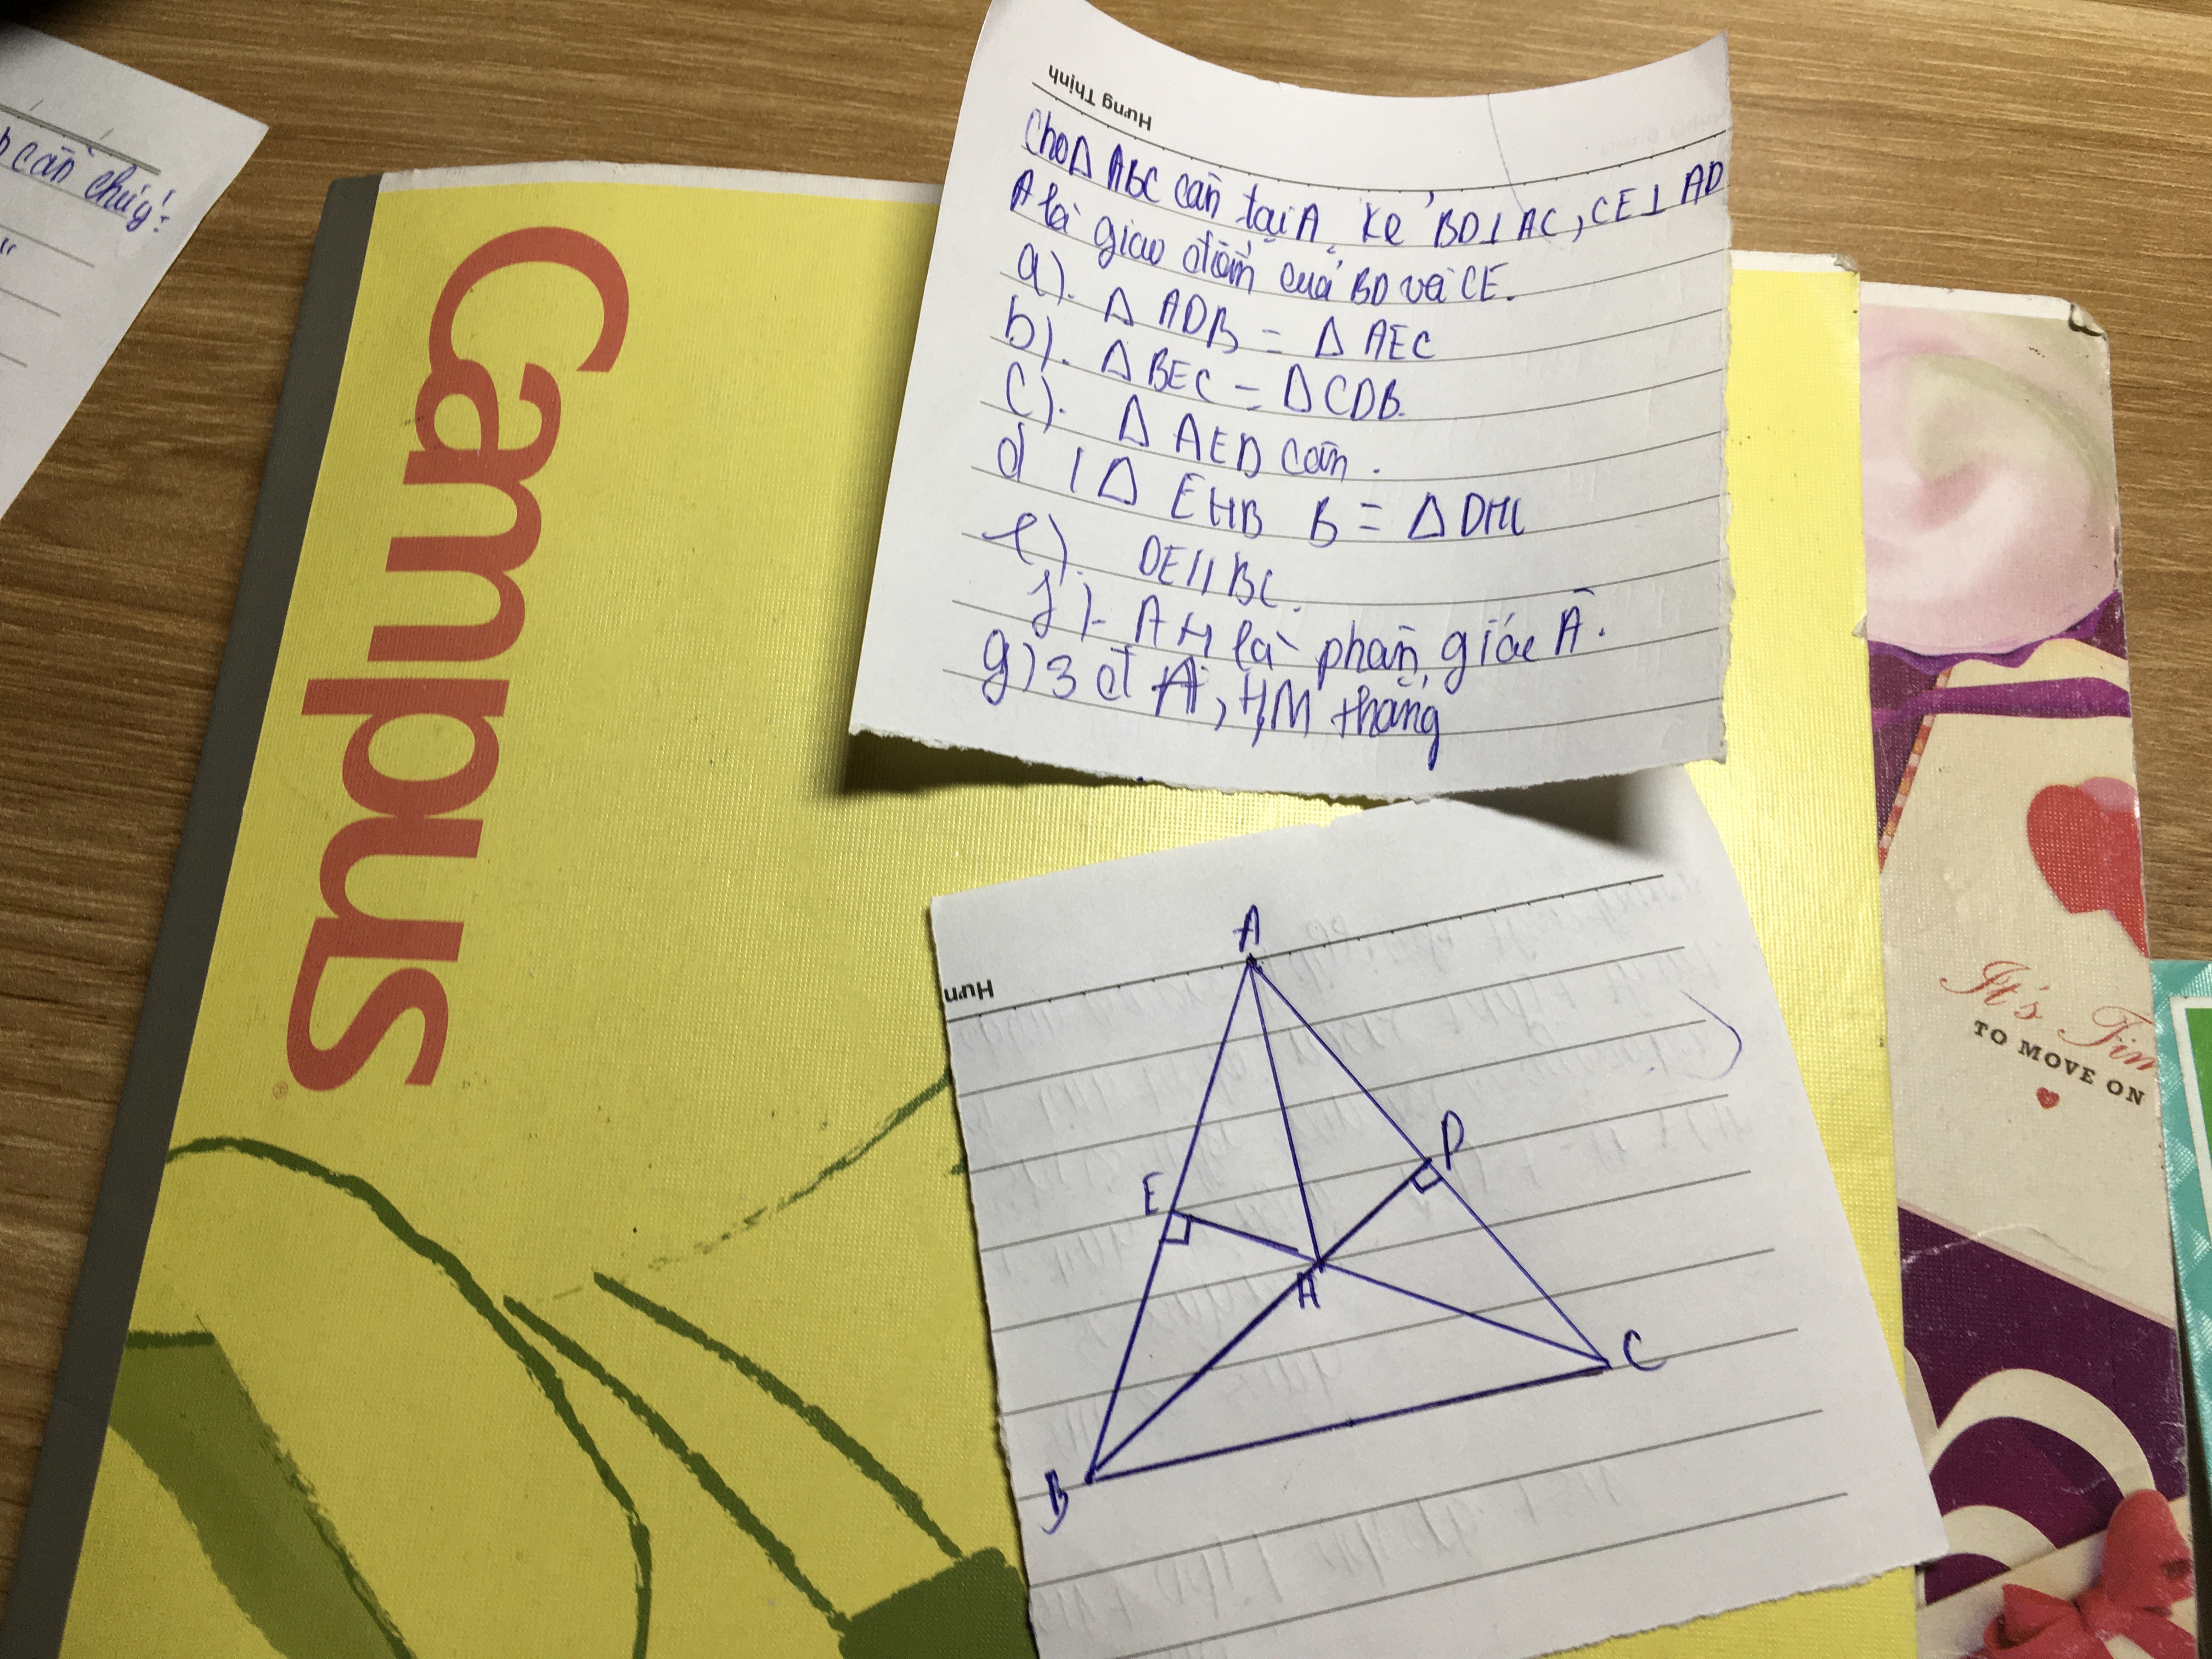 cần chú ý:
"
Hưng Thịnh
Cho Δ ABC cân tại A. Kẻ BD⊥AC, CE⊥AD
A là giao điểm của BD và CE.
a). Δ ADB = Δ AEC
b). Δ BEC = Δ CDB.
c). Δ AED cân.
d / Δ EHB B = Δ DHC
e). DE//BC.
f). AH là phân giác Â.
g) 3 đ A, H, M thẳng
Campus
Hưn
A
E
D
H
C
B
It's Tim
TO MOVE ON